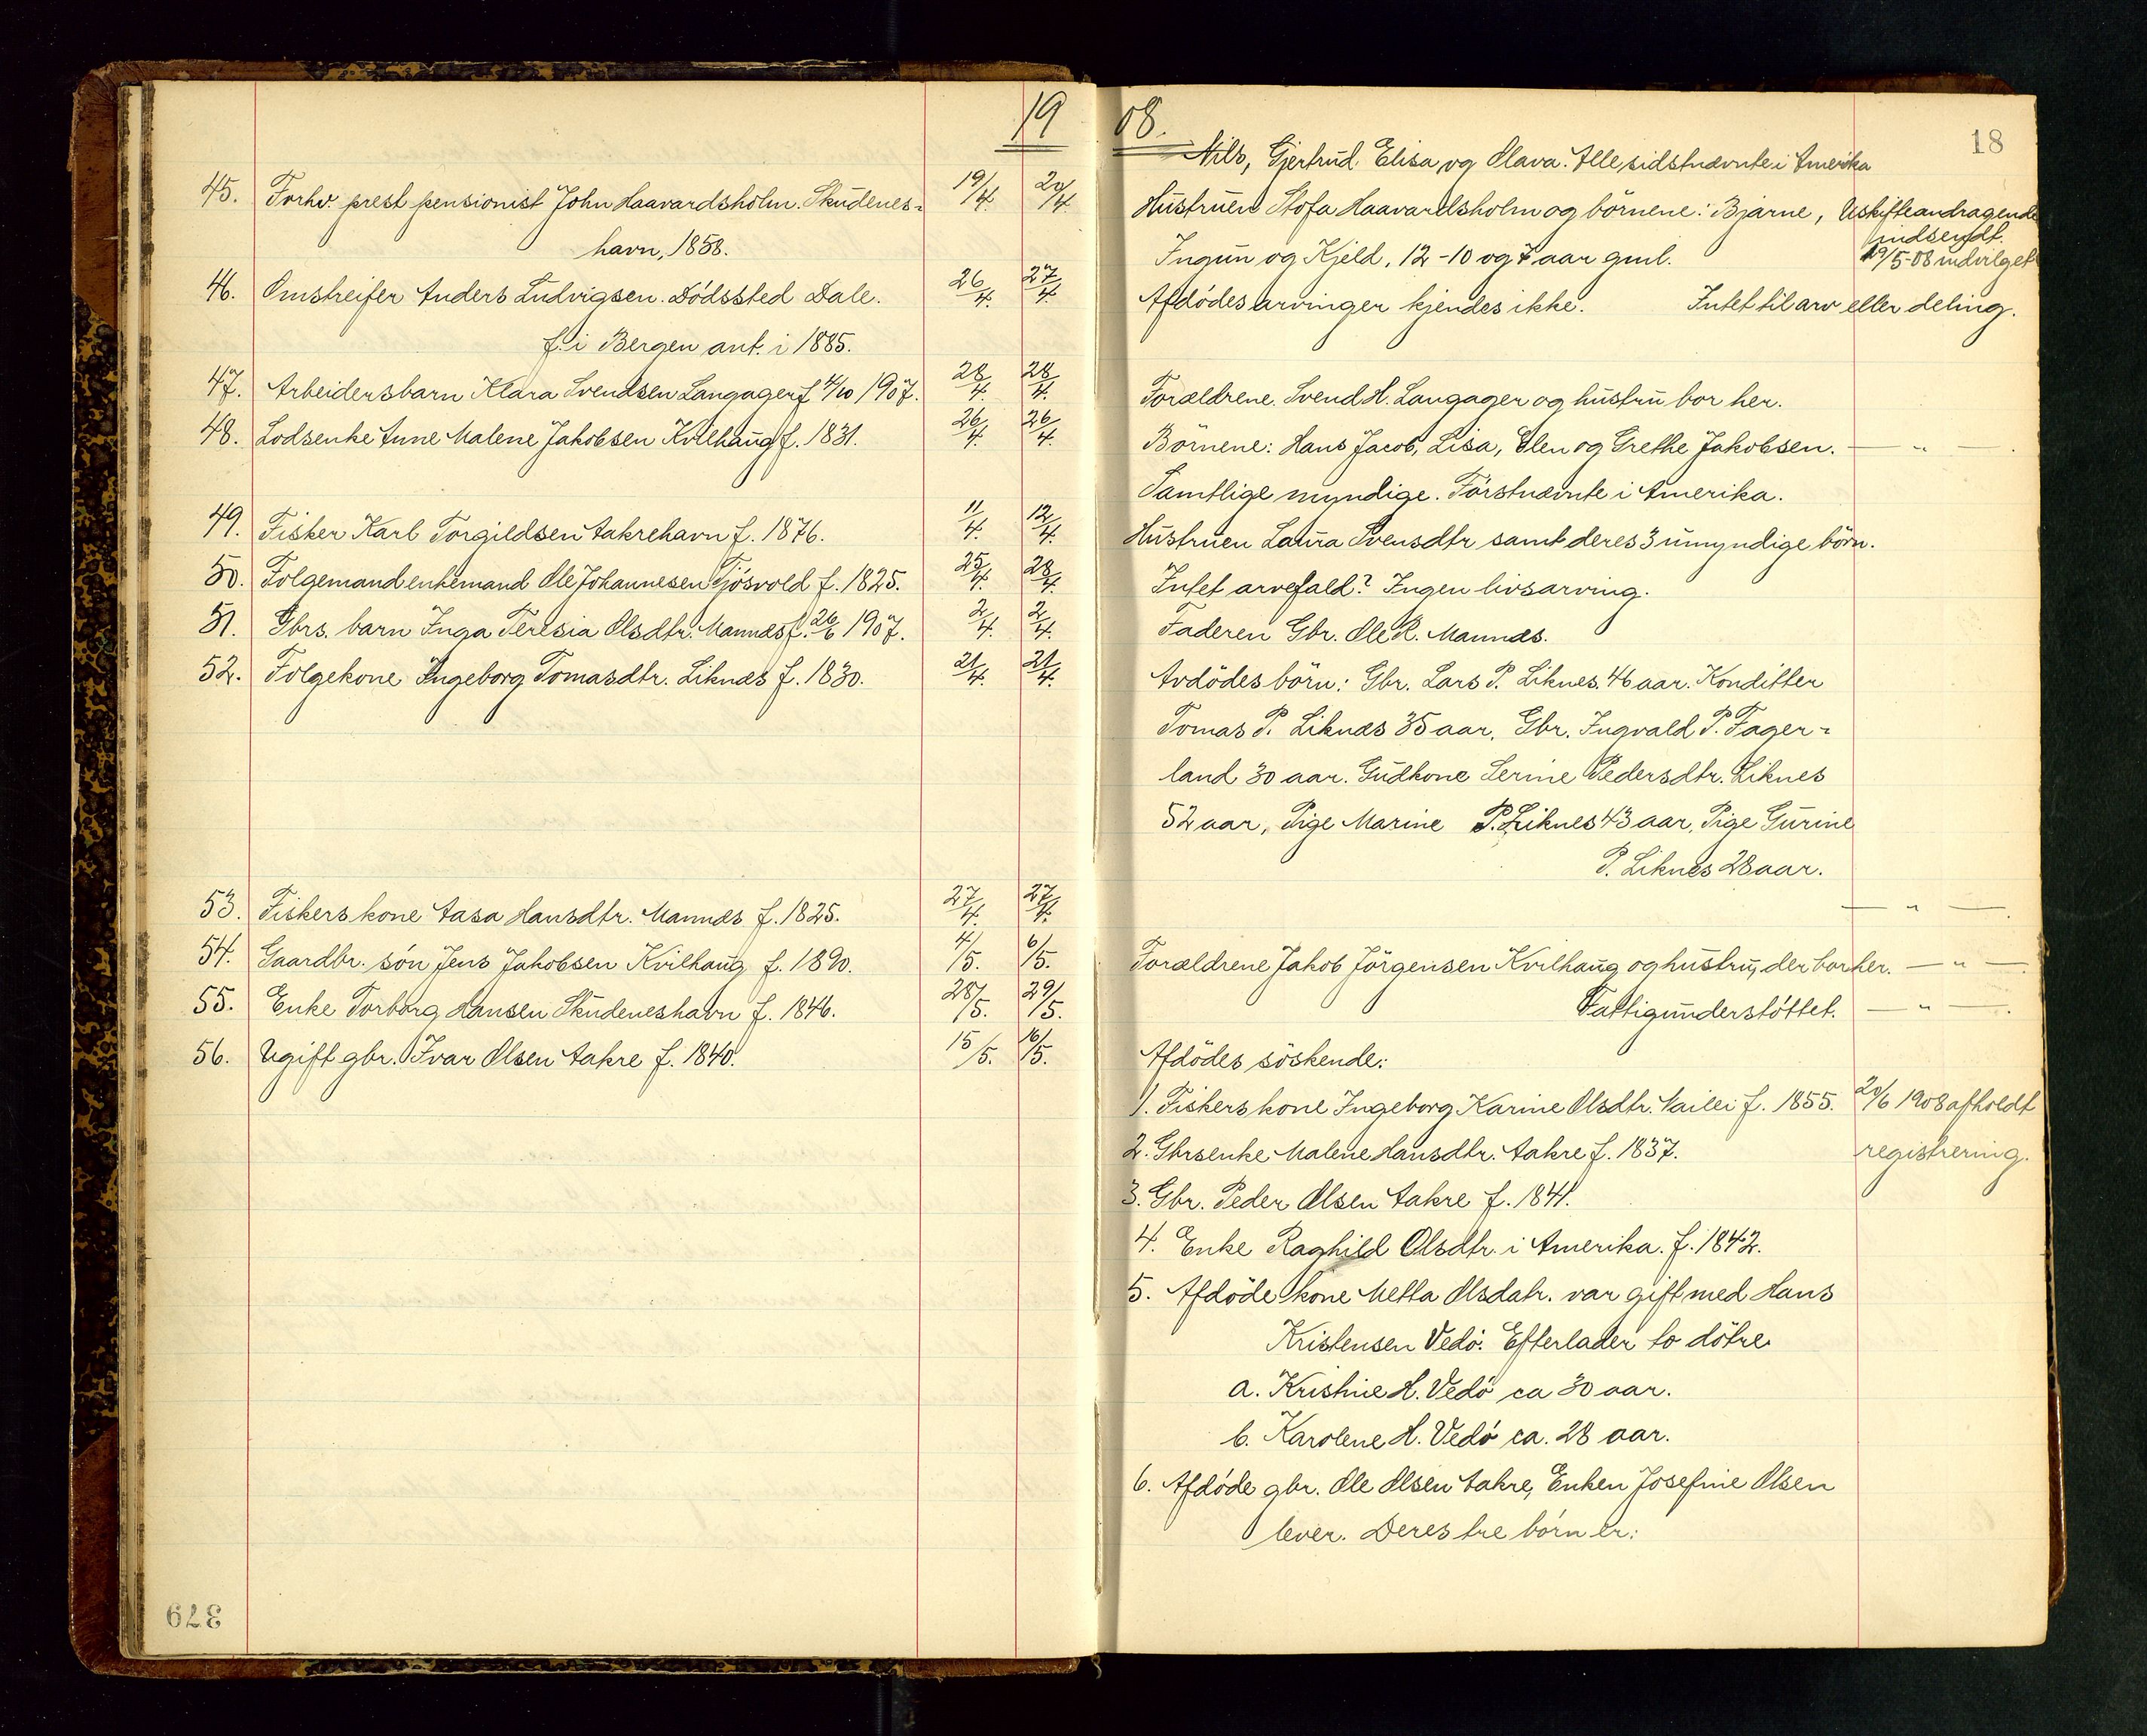 19
45. Forhv. prest pensionist John Haavardsholm. Skudenes- 19/4. 20/4.
havn, 1858.
46. Omstreifer Anders Ludvigsen. Dödssted Dale. 26/4. 27/4
f. i Bergen ant. i 1885.
47. Arbeidersbarn Klara Svendsen Langager f 4/10 1907. 28/4. 28/4.
48. Lodsenke Anne Malene Jakobsen Kvilhaug f. 1831. 26/4. 26/4.
49. Fisker Karl Torgildsen Aakrehavn f. 1876. 11/4. 12/4.
50. Folgemand enkemand Ole Johannesen Tjösvold f. 1825. 25/4. 28/4.
51. Gbrs. barn Inga Teresia Olsdtr. Mannæs f. 26/6 1907. 2/4. 2/4.
52. Folgekone Ingeborg Tomasdtr. Liknæs f. 1830. 21/4. 21/4.
53. Fiskers kone Aasa Hansdtr. Mannæs f. 1825. 27/4. 27/4.
54. Gaardbr. sön Jens Jakobsen Kvilhaug f. 1890. 4/5. 6/5.
55. Enke Torborg Hansen Skudeneshavn f. 1846. 28/5. 29/5.
56. Ugift gbr. Ivar Olsen Aakre f. 1840. 15/5. 16/5.
379
08.
18
Nils, Gjertrud Elisa og Olava. Alle sidstnævnte i Amerika
Hustruen Stofa Haavardsholm og börnene: Bjarne, Uskifteandragende
indsendt.
Ingun og Kjeld, 12-10 og 7 aar gml. 19/5-08 indvilget
Afdödes arvinger kjendes ikke. Intet til arv eller deling.
Forældrene. Svend H. Langager og hustru bor her.
Börnene: Hans Jacob, Lisa, Elen og Grethe Jakobsen. — " —.
Samtlige myndige. Förstnævnte i Amerika.
Hustruen Laura Svensdtr samt deres 3 umyndige börn.
Intet arvefald? Ingen livsarving.
Faderen Gbr. Ole R. Mannæs.
Avdödes börn: Gbr. Lars P. Liknes. 46 aar. Konditter
Tomas P. Liknæs 35 aar. Gbr. Ingvald P. Fager-
land 30 aar. Gudkone Serine Pedersdtr. Liknes
52 aar, Pige Marine P. Liknes 43 aar, Pige Gurine
P. Liknes 28 aar.
— " —.
Forældrene Jakob Jörgensen Kvilhaug og hustru, der bor her. — " —.
Fattigunderstöttet. — " —.
Afdödes söskende:
1. Fiskers kone Ingeborg Karine Olsdtr. f. 1855. 20/6 1908 afholdt
2. Gbrsenke Malene Hansdtr. Aakre f. 1837. registrering.
3. Gbr. Peder Olsen Aakre f. 1841.
4. Enke Raghild Olsdtr. i Amerika. f. 1842.
5. Afdöde kone Metta Olsdatr. var gift med Hans
Kristensen Vedö. Efterlader to dötre
a. Kristine H. Vedö ca 30 aar.
b. Karolene H. Vedö ca. 28 aar.
6. Afdöde gbr. Ole Olsen Aakre, Enken Josefine Olsen
lever. Deres tre börn er: